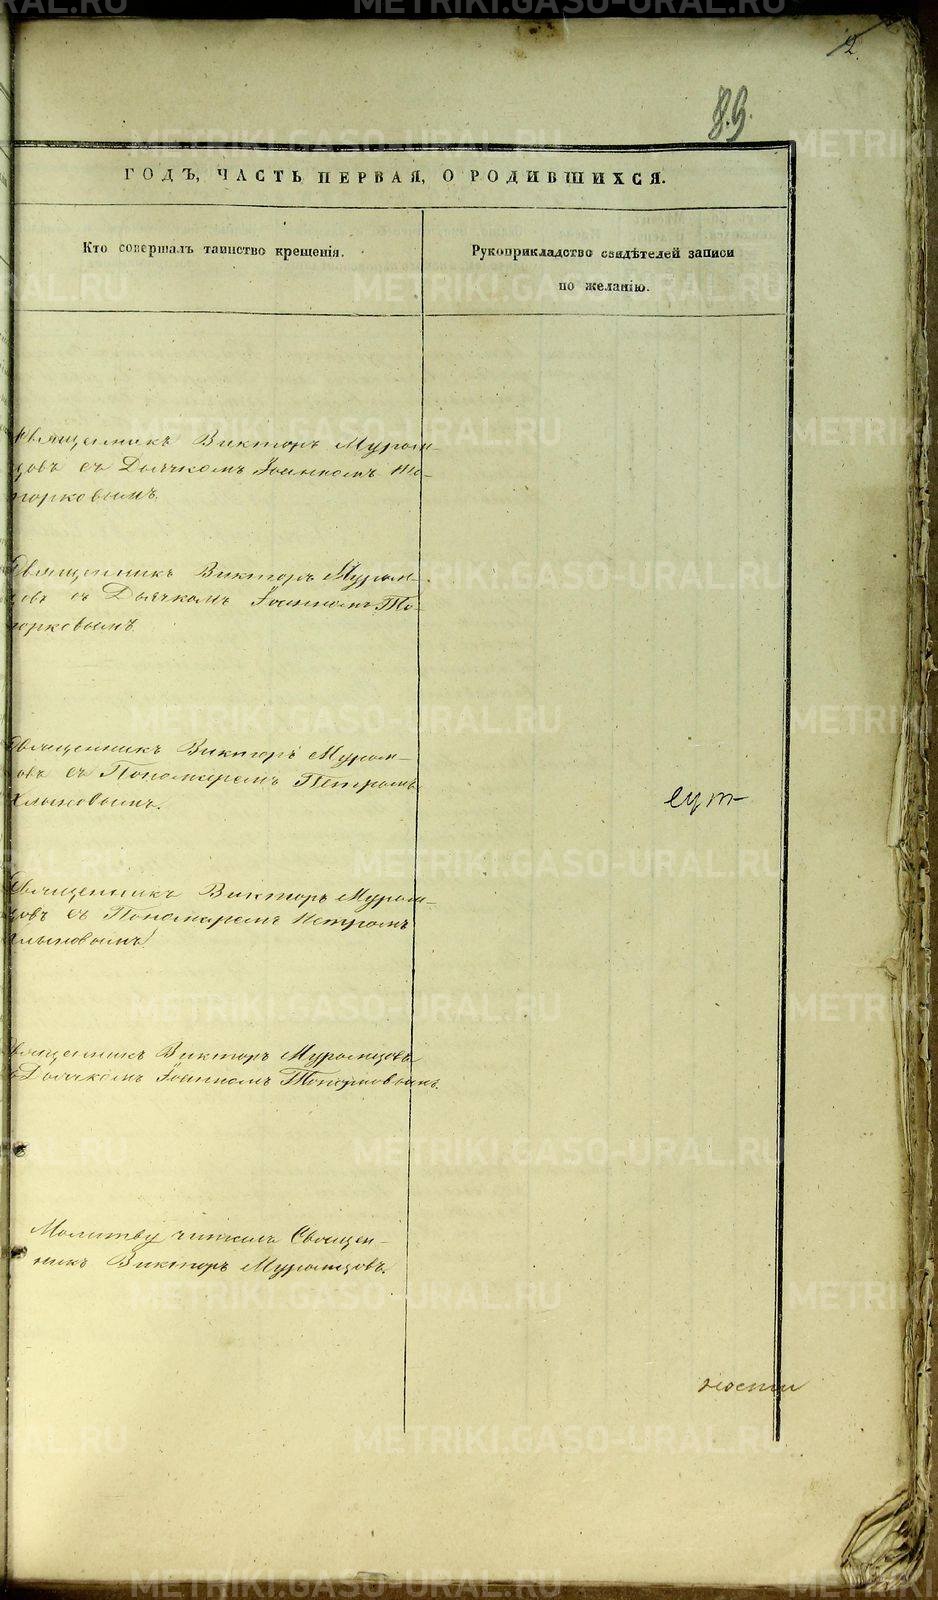 2.
89.
ГОДЪ, ЧАСТЬ ПЕРВАЯ, О РОДИВШИХСЯ.
Кто совершалъ таинство крещенія.
Рукоприкладство свидѣтелей записи
по желанію.
Священникъ Викторъ Муром-
цовъ съ Дьячкомъ Іоанномъ То-
порковымъ.
Священникъ Викторъ Муром-
цовъ съ Дьячкомъ Іоанномъ То-
порковымъ.
Священникъ Викторъ Муром-
цовъ съ Пономаремъ Петромъ
Хлыновымъ.
Священникъ Викторъ Муром-
цовъ съ Пономаремъ Петромъ
Хлыновымъ.
Священникъ Викторъ Муромцовъ
съ Дьячкомъ Іоанномъ Топорковымъ.
Молитву читалъ Священ-
никъ Викторъ Муромцовъ.
ности
METRIKI.GASO-URAL.RU